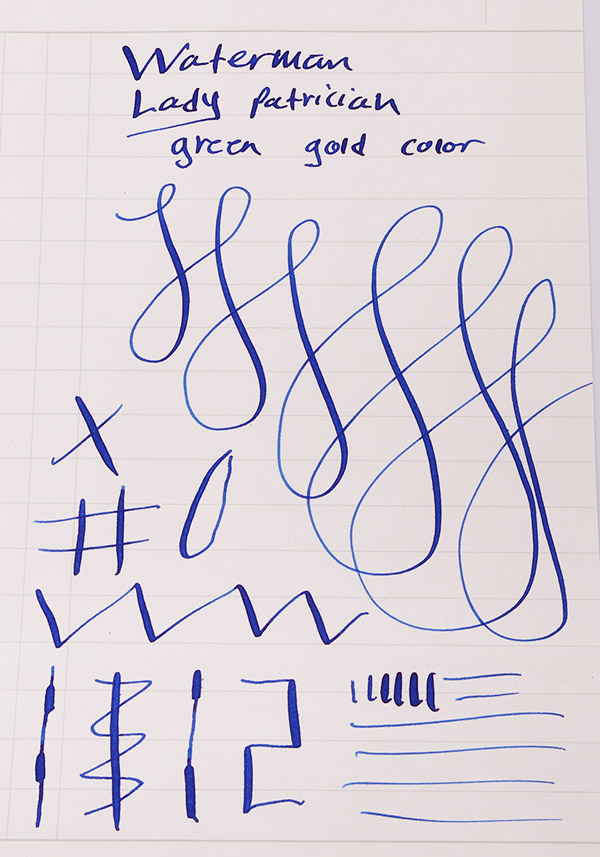 Waterman
Lady Patrician
green gold color